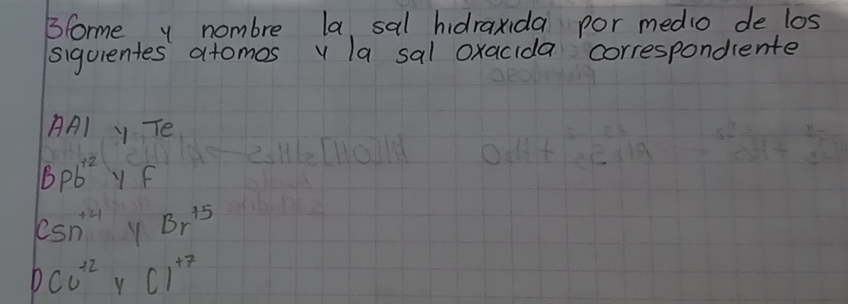 3 forme y nombre la sal hidraxida por medio de los
siguientes atomos y la sal oxacida correspondiente
A Al y Te
B Pb+2 y f
C Sn+4 y Br+5
D Cu+2 y Cl+7